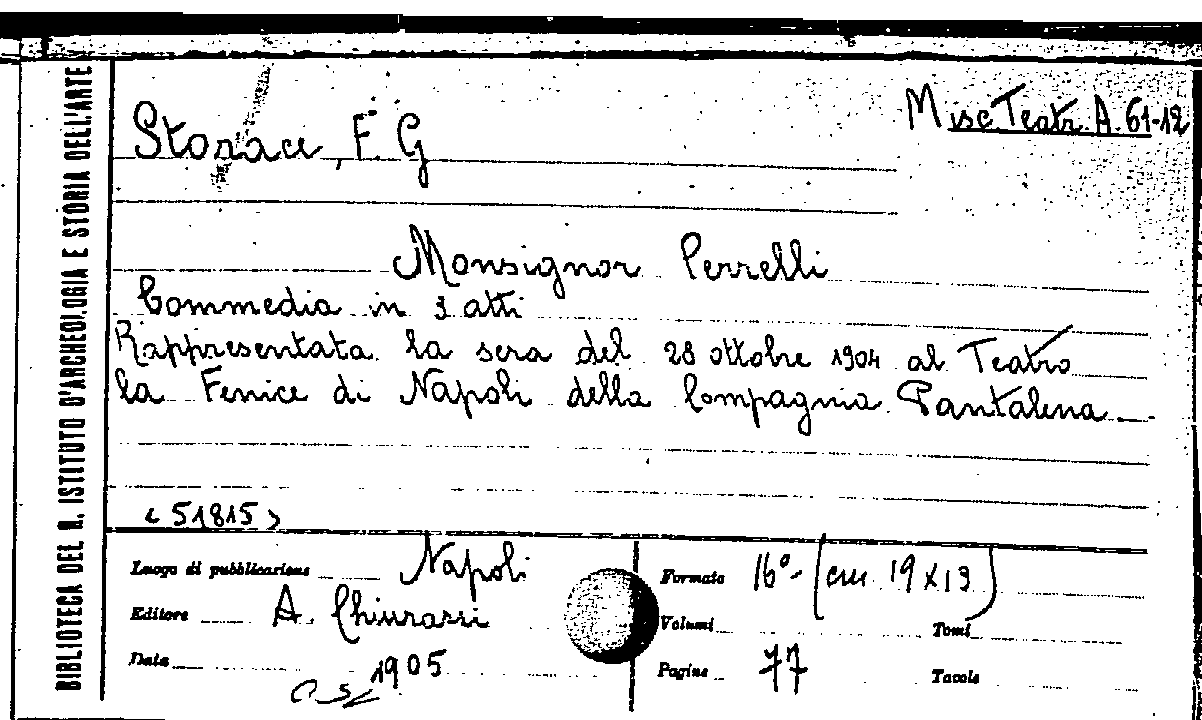 BIBLIOTECA DEL R. ISTITUTO D'ARCHEOLOGIA E STORIA DELL'ARTE
Misc Teatr. A. 61-12
Storace, F. G
Monsignor Perrelli
Commedia in 3 atti
Rappresentata la sera del 28 ottobre 1904 al Teatro
la Fenice di Napoli della Compagnia Pantalena
<51815>
Luogo di pubblicazione Napoli
Editore A. Chiurazzi
Data 1905
Formato 16°- (cm 19x13)
Volumi Tomi
Pagine 77 Tavole